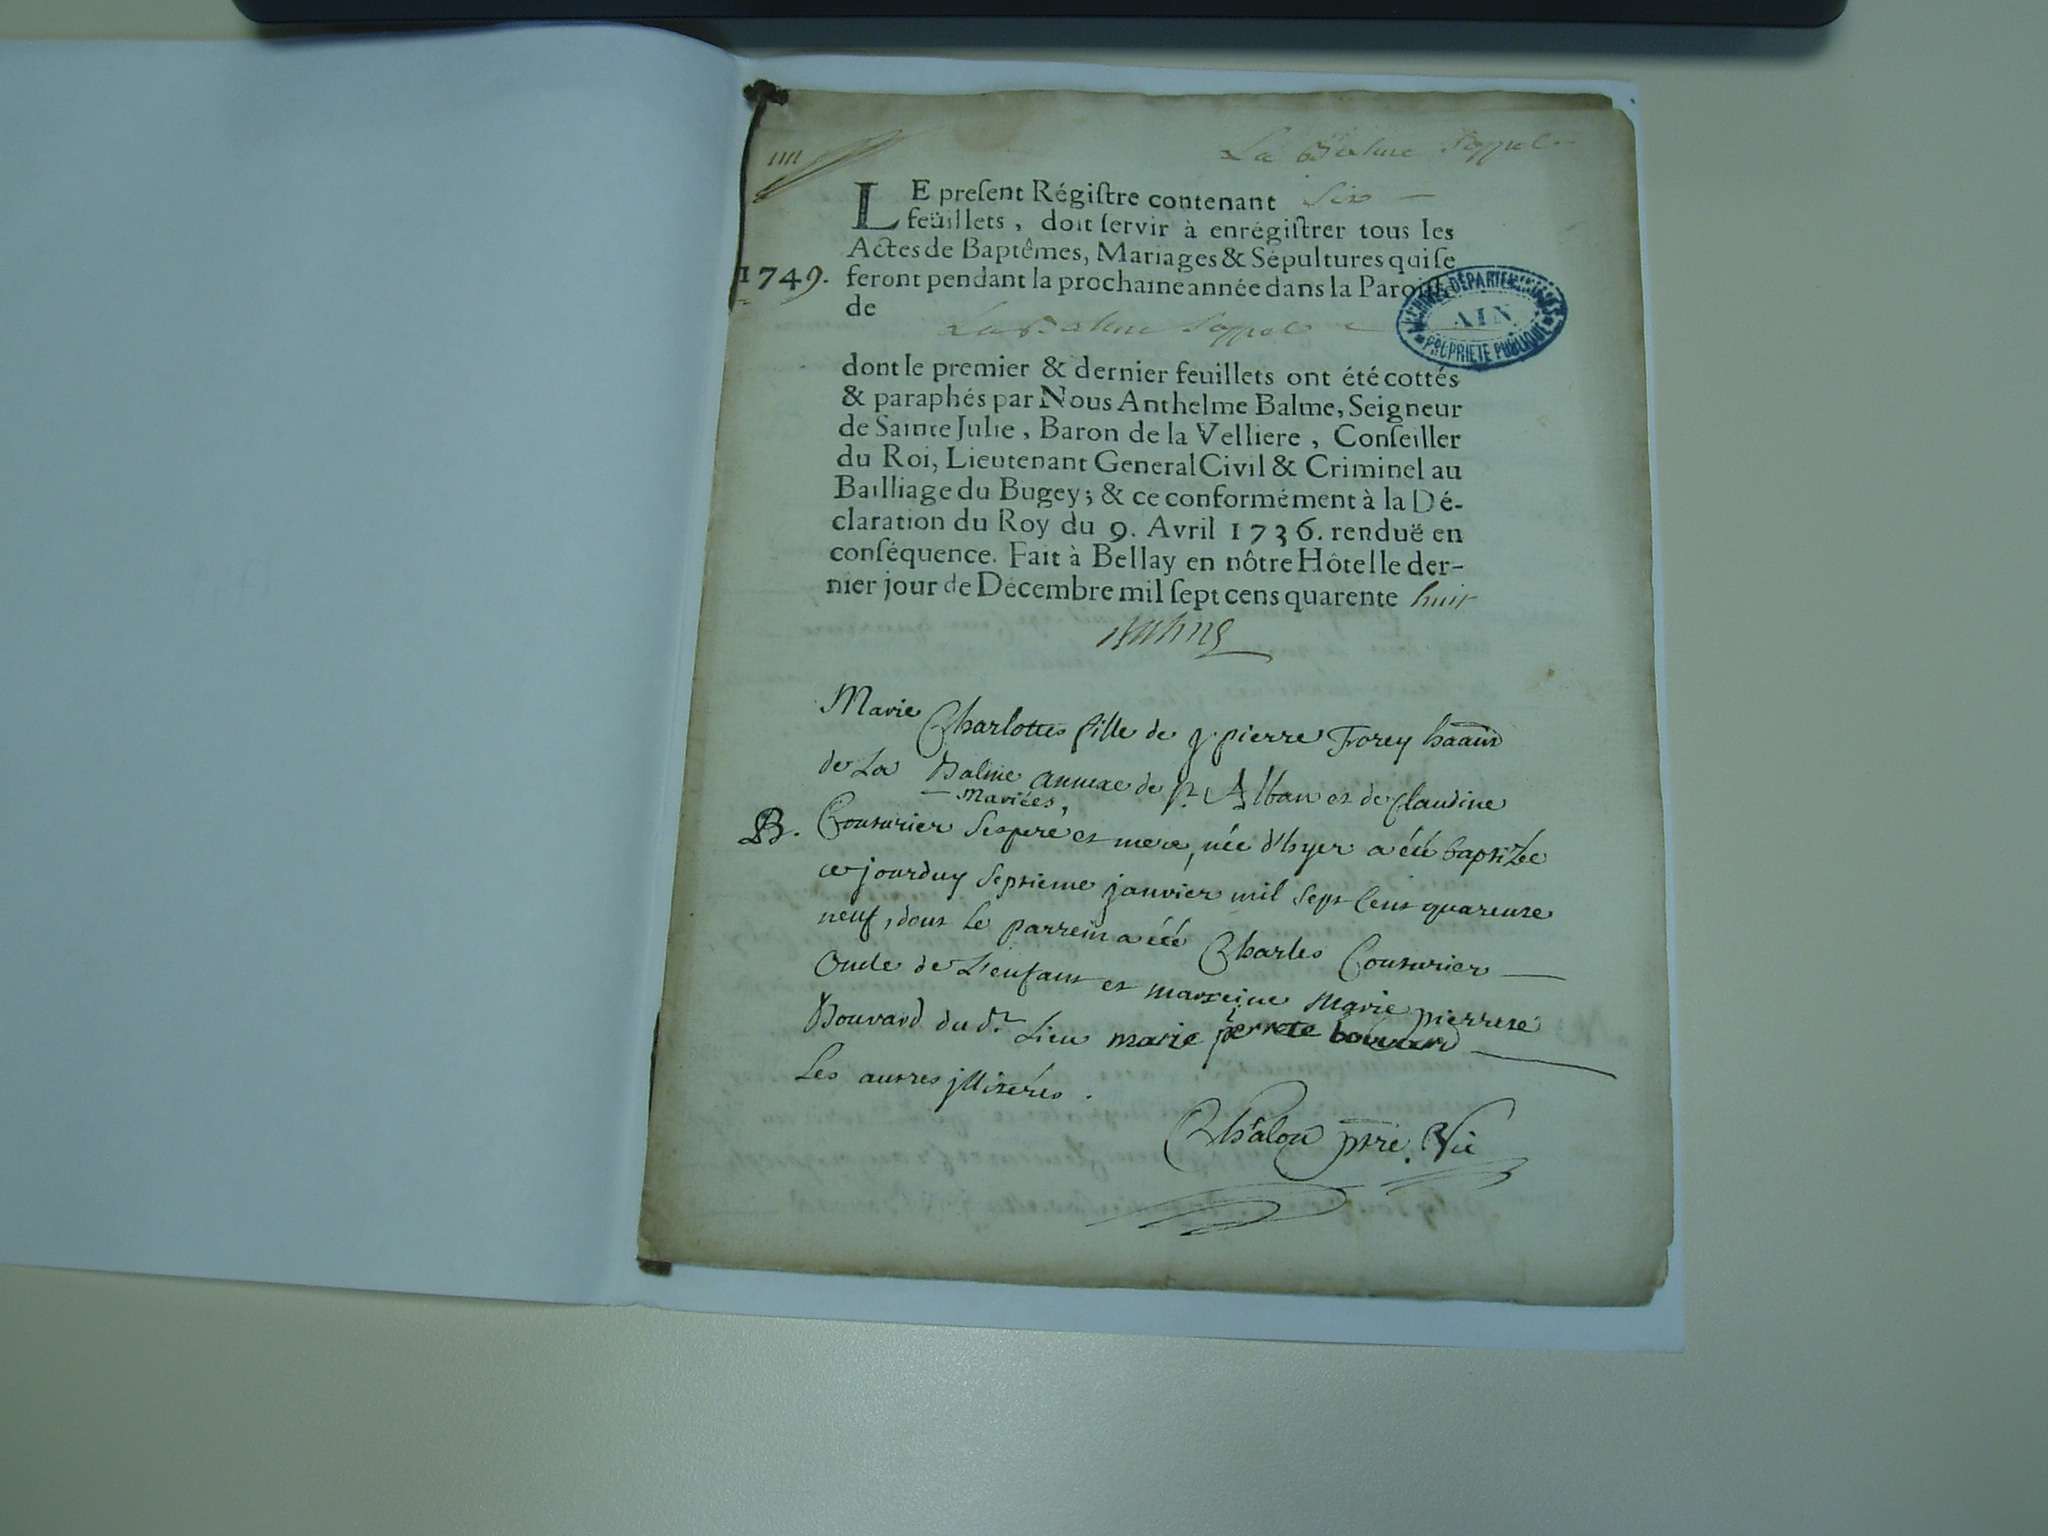 La Balme Sappel
LE preſent Régiſtre contenant six
feüillets, doit ſervir à enrégiſtrer tous les
Actes de Baptêmes, Mariages & Sépultures qui ſe
1749. feront pendant la prochaine année dans la Paroiſſe
de
La Balme Sappel
ARCHIVES DÉPARTEMENTALES
AIN
PROPRIÉTÉ PUBLIQUE
dont le premier & dernier feuillets ont été cottés
& paraphés par Nous Anthelme Balme, Seigneur
de Sainte Julie, Baron de la Velliere, Conſeiller
du Roi, Lieutenant General Civil & Criminel au
Bailliage du Bugey; & ce conformément à la Dé-
claration du Roy du 9. Avril 1736. renduë en
conſéquence. Fait à Bellay en nôtre Hôtel le der-
nier jour de Décembre mil ſept cens quarente huit
Balme
Marie Charlotte fille de j. pierre Forey
de La Balme annexe de St. Alban et de Claudine
mariées,
B. Couturier ses pere et mere, née d'hyer a été baptizée
ce jourduy septieme janvier mil sept cent quarente
neuf, dont le parrein a été Charles Couturier
oncle de L'enfant et marreine Marie pierrete
Bouvard du dt. Lieu marie pierrete bouvard
Les autres jllitérés.
Chalon ptre. Vic